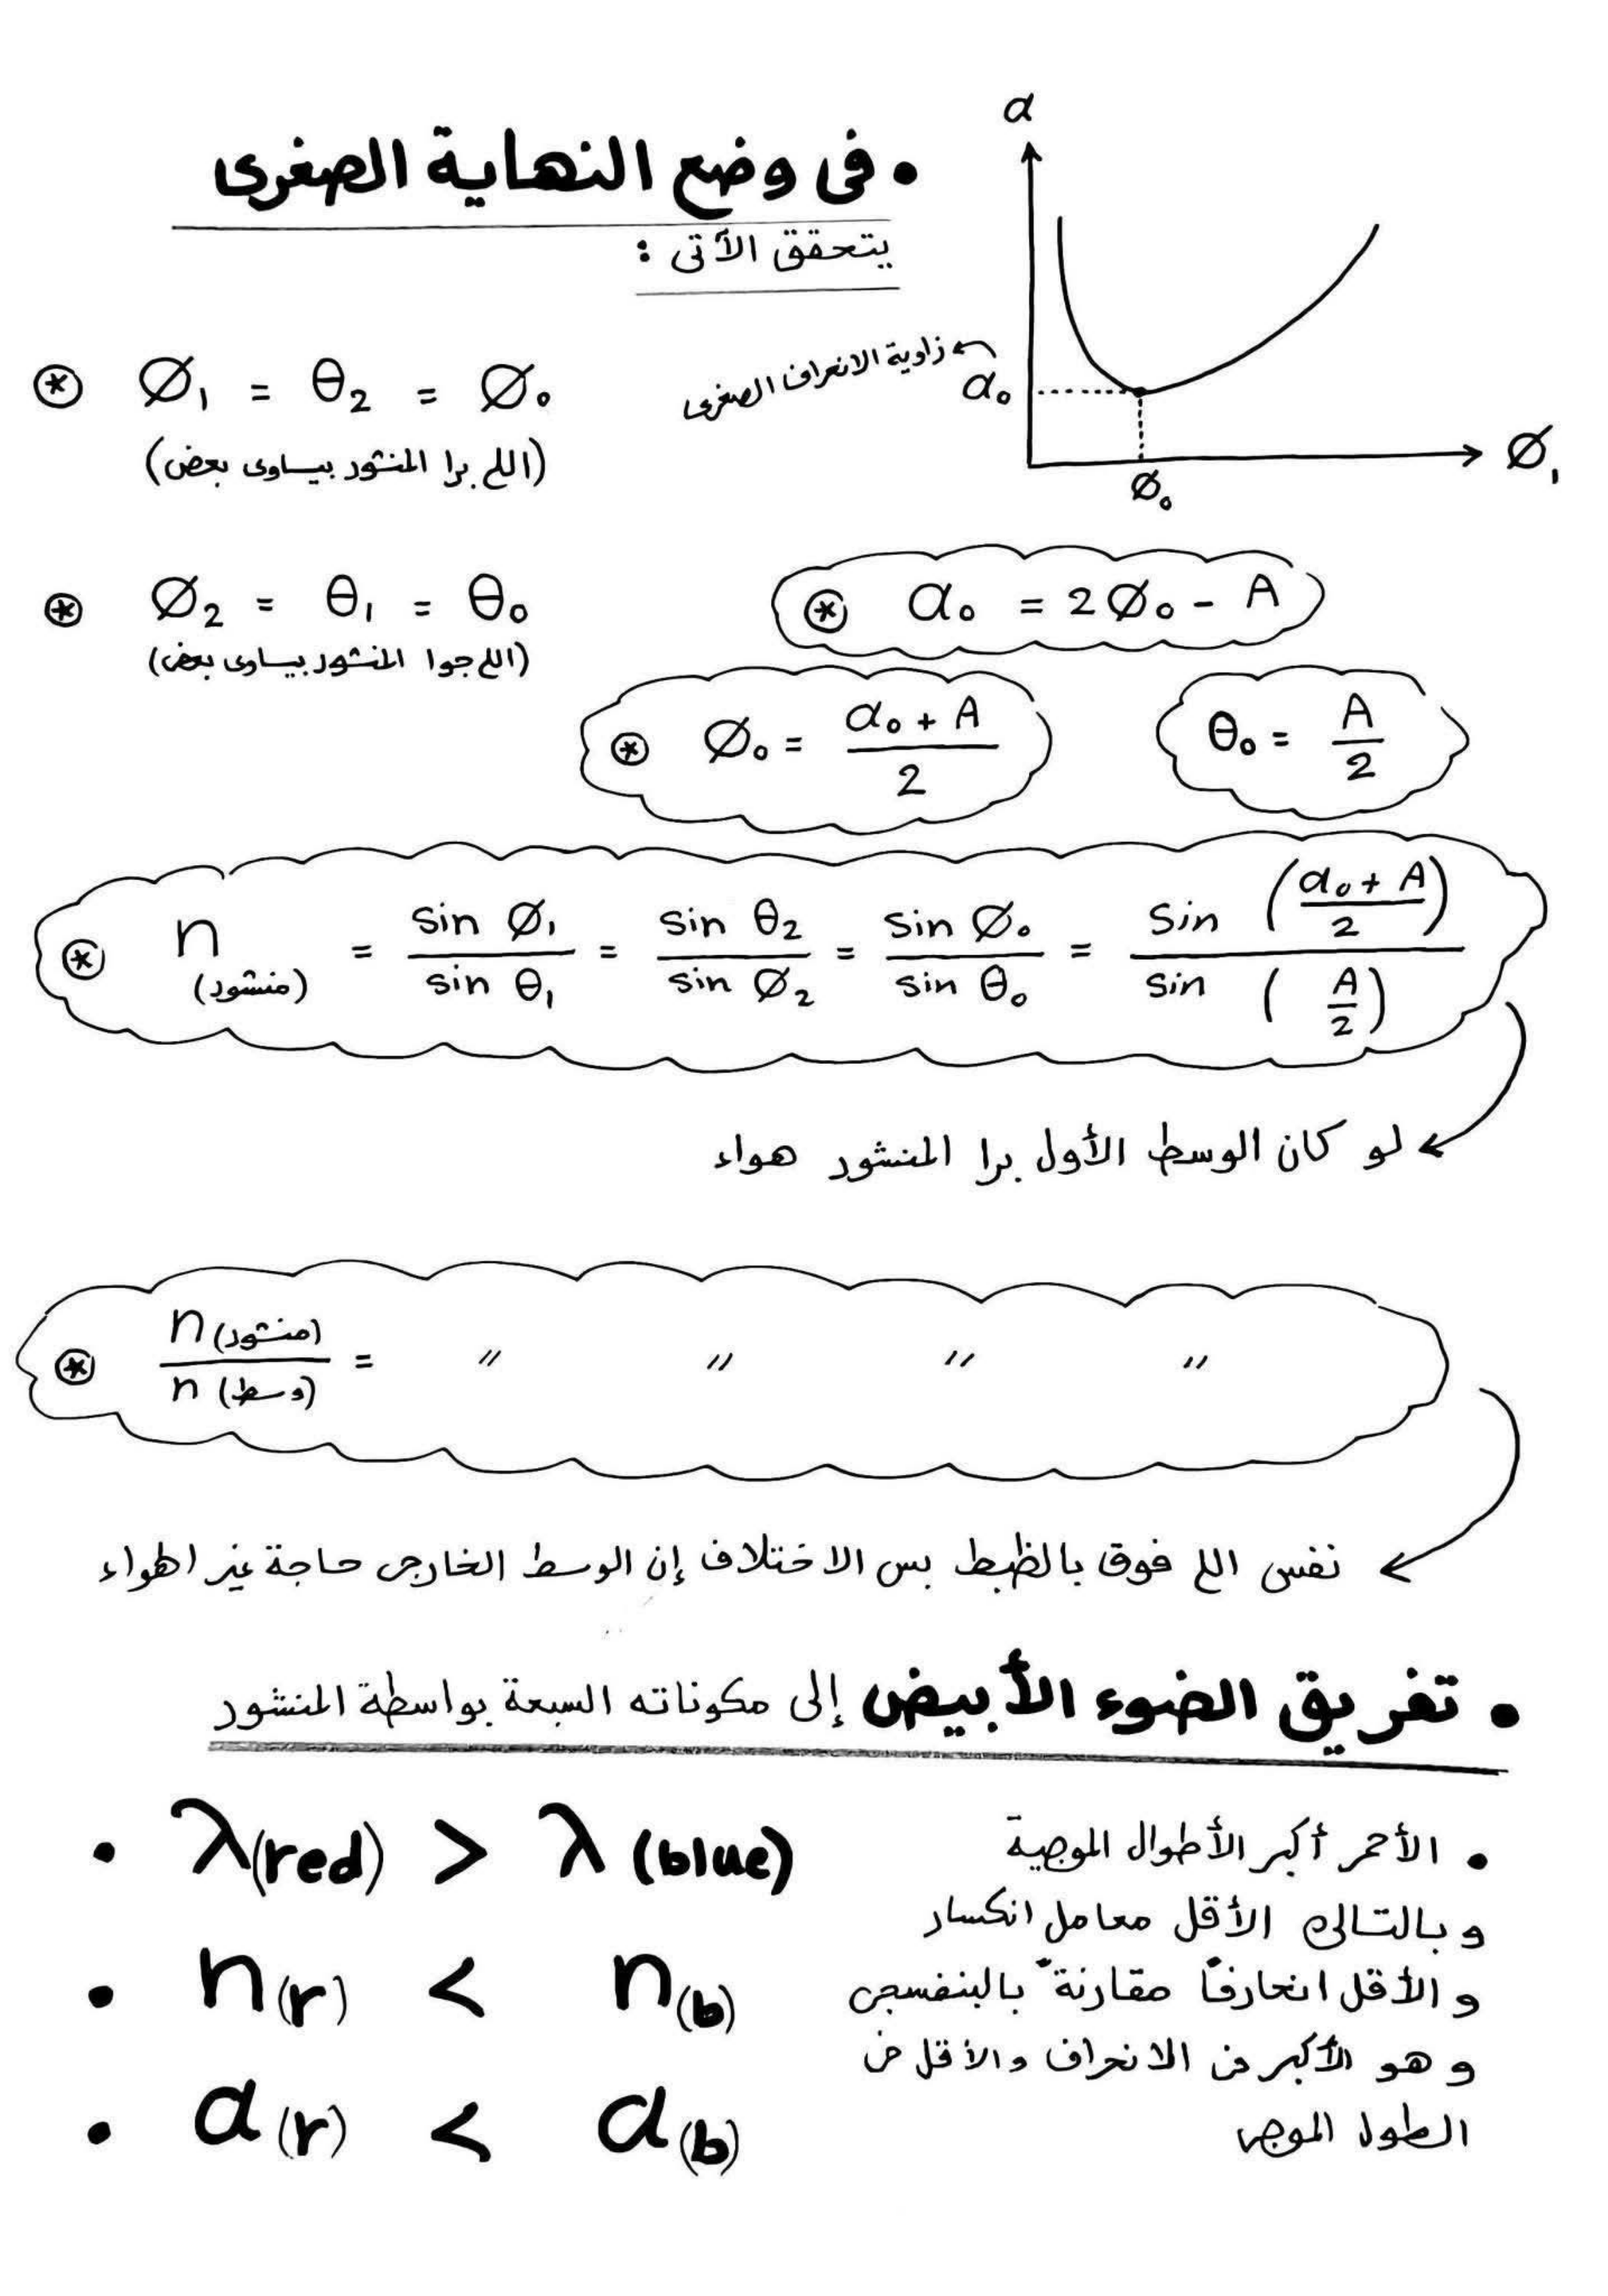 • فى وضع النهاية الصغرى
يتحقق الآتى :
α
زاوية الانحراف الصغرى
α₀
Ø₁
Ø₀
⊛ Ø₁ = θ₂ = Ø₀
(اللى برا المنشور بيساوى بعض)
⊛ Ø₂ = θ₁ = θ₀
(اللى جوا المنشور بيساوى بعض)
⊛ α₀ = 2Ø₀ - A
⊛ Ø₀ = (α₀ + A) / 2
θ₀ = A / 2
⊛ n (منشور) = sin Ø₁ / sin θ₁ = sin θ₂ / sin Ø₂ = sin Ø₀ / sin θ₀ = sin ((α₀ + A) / 2) / sin (A / 2)
لو كان الوسط الأول برا المنشور هواء
⊛ n (منشور) / n (وسط) = " " " "
نفس اللى فوق بالظبط بس الاختلاف إن الوسط الخارجى حاجة غير الهواء
• تفريق الضوء الأبيض إلى مكوناته السبعة بواسطة المنشور
• λ(red) > λ (blue)
• n(r) < n(b)
• α(r) < α(b)
• الأحمر أكبر الأطوال الموجية
وبالتالى الأقل معامل انكسار
و الأقل انحارفًا مقارنةً بالبنفسجى
و هو الأكبر فى الانحراف والأقل فى
الطول الموجى